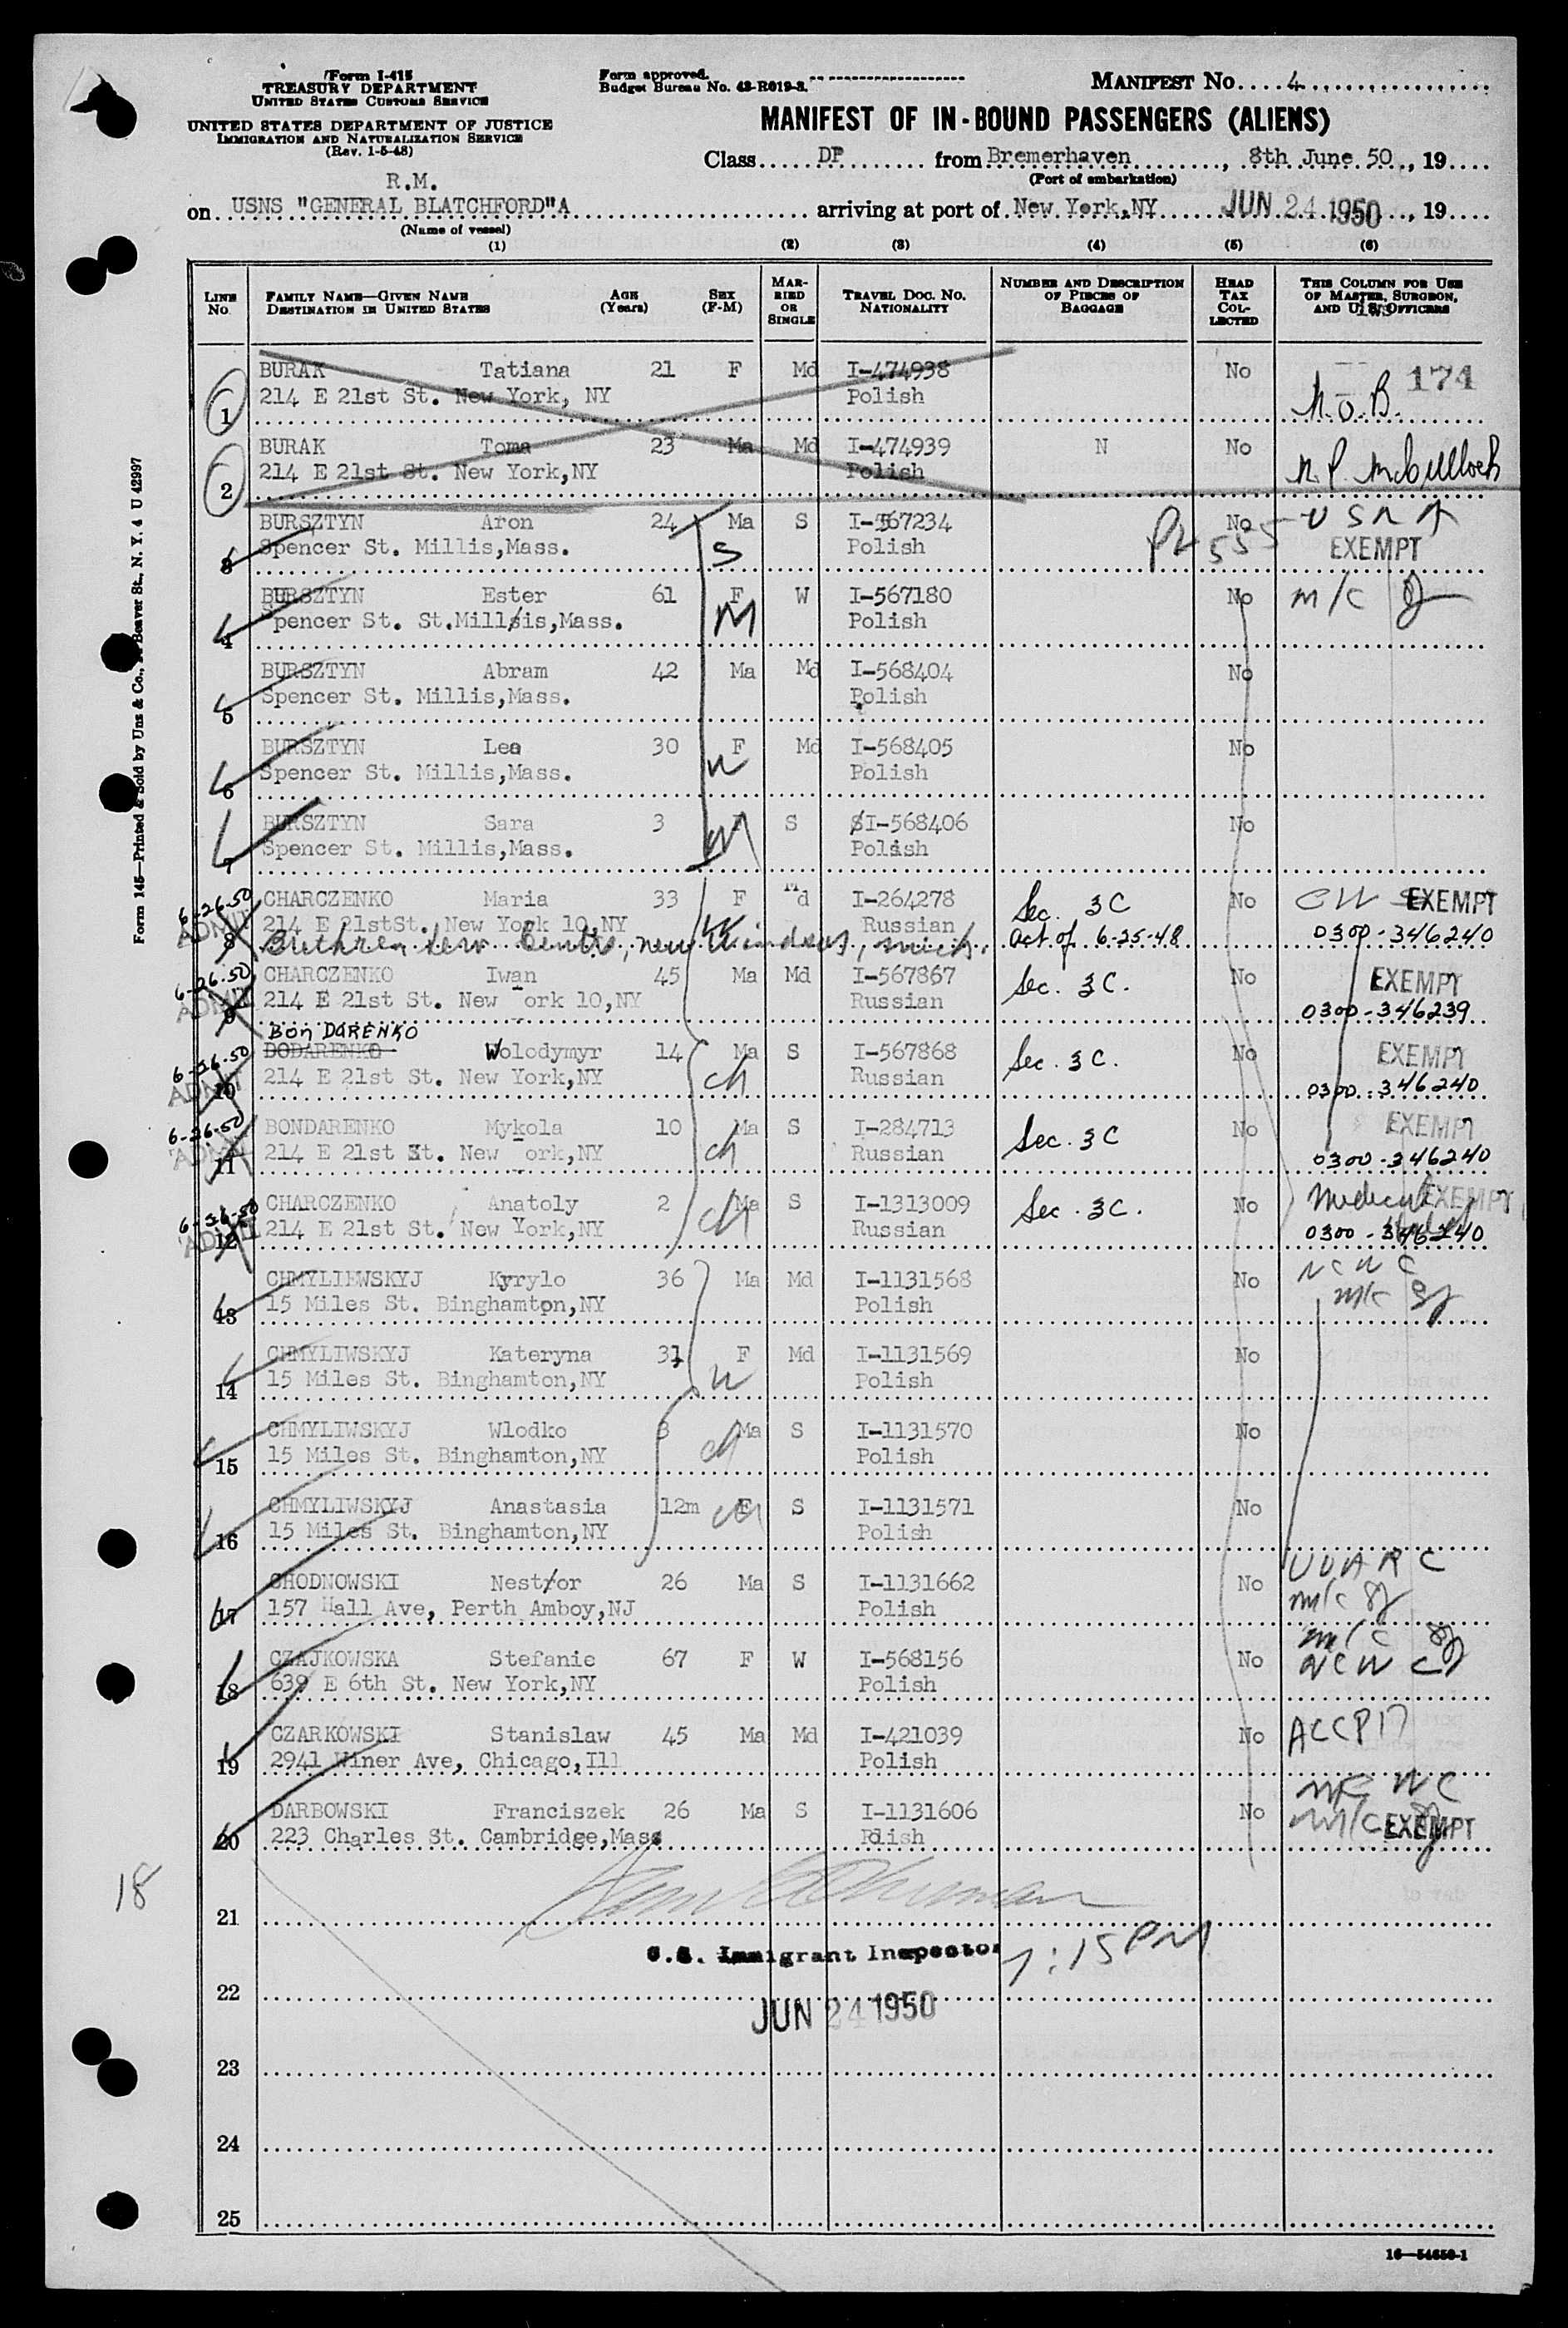 Form I-415
TREASURY DEPARTMENT
UNITED STATES CUSTOMS SERVICE
UNITED STATES DEPARTMENT OF JUSTICE
IMMIGRATION AND NATURALIZATION SERVICE
(Rev. 1-5-48)
Form approved.
Budget Bureau No. 43-R019-3.
MANIFEST No. 4
MANIFEST OF IN-BOUND PASSENGERS (ALIENS)
Class DP from Bremerhaven, 8th June 50, 19
(Port of embarkation)
R.M.
on USNS "GENERAL BLATCHFORD"A arriving at port of New York,NY JUN 24 1950, 19
(Name of vessel)
(1) (2) (3) (4) (5) (6)
LINE No. FAMILY NAME—GIVEN NAME DESTINATION IN UNITED STATES AGE (Years) SEX (F-M) MARRIED OR SINGLE TRAVEL DOC. NO. NATIONALITY NUMBER AND DESCRIPTION OF PIECES OF BAGGAGE HEAD TAX COLLECTED THIS COLUMN FOR USE OF MASTER, SURGEON, AND U. S. OFFICERS
174
1 BURAK Tatiana 21 F Md I-474938 No
214 E 21st St. New York, NY Polish N.O.B.
2 BURAK Toma 23 Ma Md I-474939 N No
214 E 21st St. New York,NY Polish
3 BURSZTYN Aron 24 Ma S I-567234 No USNA
Spencer St. Millis,Mass. S Polish EXEMPT
4 BURSZTYN Ester 61 F W I-567180 No m/c
Spencer St. St.Millsis,Mass. M Polish
5 BURSZTYN Abram 42 Ma Md I-568404 No
Spencer St. Millis,Mass. Polish
6 BURSZTYN Lea 30 F Md I-568405 No
Spencer St. Millis,Mass. Polish
7 BURSZTYN Sara 3 S SI-568406 No
Spencer St. Millis,Mass. Polish
6-26-50 ADMIT
8 CHARCZENKO Maria 33 F Md I-264278 Sec. 3C No EXEMPT
214 E 21stSt. New York 10,NY Russian Act of 6-25-48 0300-346240
6-26-50 ADMIT
9 CHARCZENKO Iwan 45 Ma Md I-567867 Sec. 3C. No EXEMPT
214 E 21st St. New ork 10,NY Russian 0300-346239
BON DARENKO
6-26-50 ADMIT
10 DODARENKO Wolodymyr 14 Ma S I-567868 Sec. 3C. No EXEMPT
214 E 21st St. New York,NY ch Russian 0300-346240
6-26-50 ADMIT
11 BONDARENKO Mykola 10 Ma S I-284713 Sec. 3C No EXEMPT
214 E 21st St. New ork,NY ch Russian 0300-346240
6-26-50 ADMIT
12 CHARCZENKO Anatoly 2 Ma S I-1313009 Sec. 3C. No Medical EXEMPT
214 E 21st St. New York,NY ch Russian 0300-346240
13 CHMYLIEWSKYJ Kyrylo 36 Ma Md I-1131568 No NCWC
15 Miles St. Binghamton,NY Polish m/c
14 CHMYLIWSKYJ Kateryna 31 F Md I-1131569 No
15 Miles St. Binghamton,NY Polish
15 CHMYLIWSKYJ Wlodko 3 Ma S I-1131570 No
15 Miles St. Binghamton,NY ch Polish
16 CHMYLIWSKYJ Anastasia 12m F S I-1131571 No
15 Miles St. Binghamton,NY ch Polish
17 CHODNOWSKI Nestror 26 Ma S I-1131662 No UUARC
157 Hall Ave, Perth Amboy,NJ Polish m/c
18 CZAJKOWSKA Stefanie 67 F W I-568156 No m/c
639 E 6th St. New York,NY Polish NCWC
19 CZARKOWSKI Stanislaw 45 Ma Md I-421039 No
2941 Winer Ave, Chicago,Ill Polish
20 DARBOWSKI Franciszek 26 Ma S I-1131606 No NCWC
223 Charles St. Cambridge,Mass Polish m/c EXEMPT
18
21
U.S. Immigrant Inspector 1:15 PM
22
JUN 24 1950
23
24
25
16—54650-1
Form 145—Printed & Sold by Unz & Co., Beaver St., N. Y. 4 U 42997